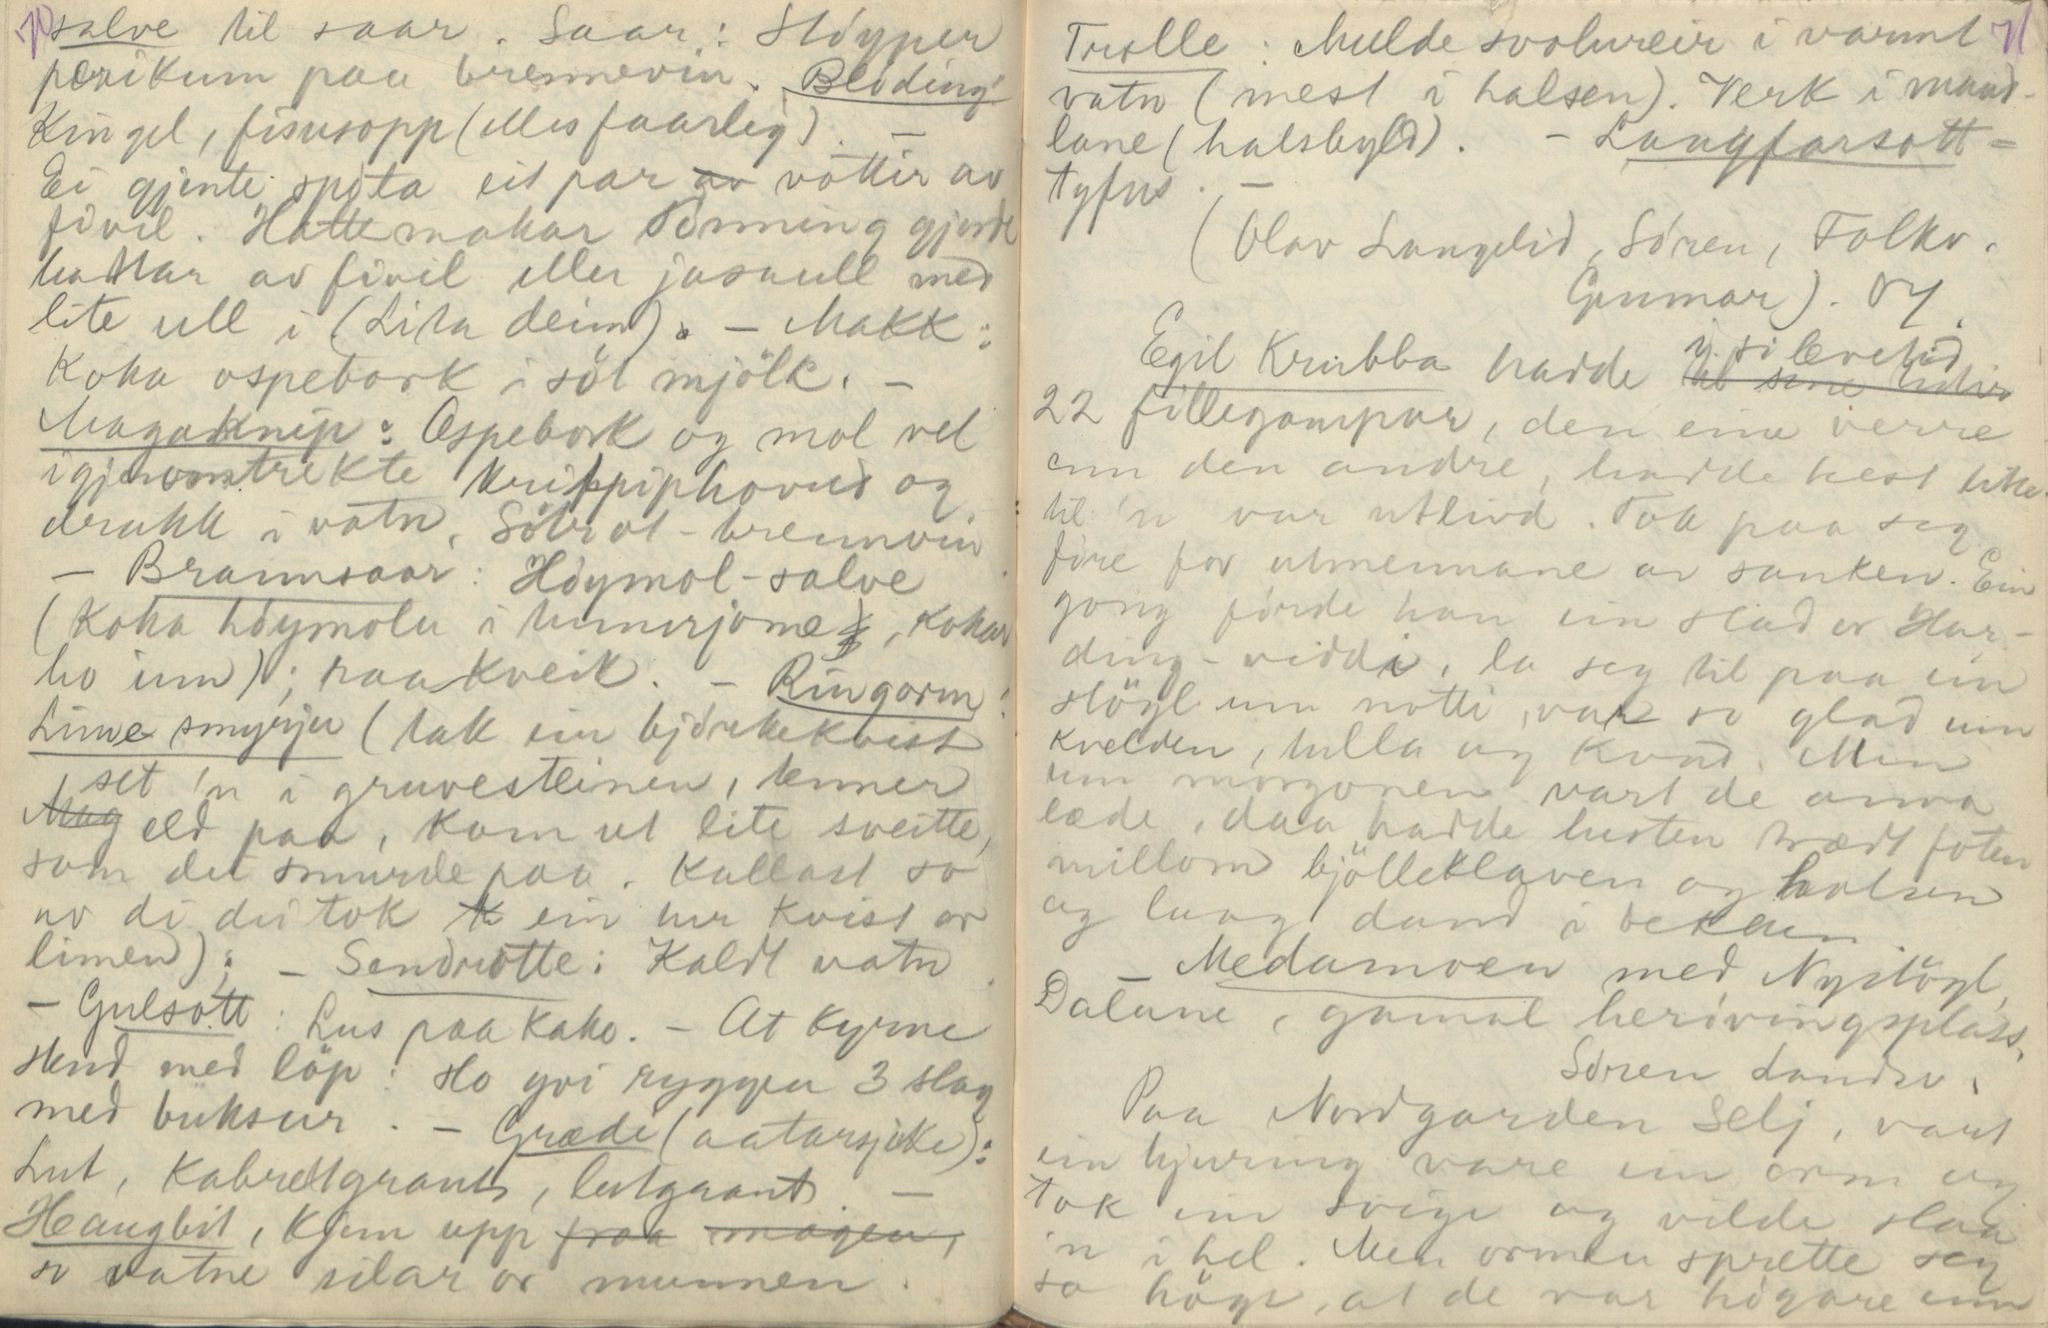 70
salve til saar. Saar: Stöyper
perikum paa brennevin. Blöding:
Kingel, fisusopp (elles faarleg). —
Ei gjente spöta eit par av vöttir av
fivil. Hattemakar Tönning gjorde
hattar av fivil eller jasaull med
lite ull i (Lita deim). — Makk:
Koka ospebork i söt mjölk. —
Magaknip: Ospebork og mol vel
igjenomtrekte kritpiphovud og
drukk i vatn. Sötrot-brennvin
— Brannsaar: Höymol-salve
(Koka höymolu i tunnrjome, kokar
ho inn); raakveik. — Ringorm:
Lime smyrju (tak ein björkekvist
set 'n i gruvesteinen, tenner
Mag eld paa, kom ut lite sveitte,
som dei smurde paa. Kallast so
av di dei tok ein turr kvist av
limen); — Sendrotte: Kaldt vatn.
— Gulsott: Lus paa kake. — At kyrne
stend med löp: slo yvi ryggen 3 slag
med buksur. — Græde (aatarsjuke):
Lut, Kabretgraut, lutgraut. —
Haugbit, kjem upp fraa magen,
so vatne silar or munnen.
71
Trolle: Mulde svolureir i varmt
vatn (mest i halsen). Verk i mand-
lane (halsbyld). — Langfarsott =
tyfus. —
(Olav Langelid, Sören, Folkv.
Gunnar). Oy.
Egil Krubba hadde i si levetid
til sine tider
22 fillegampar, den eine verre
enn den andre, hadde hest like
til 'n var utlivd. Tok paa seg
före for utmennane av sanken. Ein
gong förde han ein stad or Har-
ding-viddi, la seg til paa ein
stöyl um notti, var so glad um
kvelden, tulla og kvad. Men
um morgonen vart de anna
læde, daa hadde hesten trædt foten
millom bjölleklaven og halsen
og laag daud i bekken.
— Medamoen med Nystöyl,
Dalane, gamal heröyingsplass,
Sören Landsv.
Paa Nordgarden Selj, vart
ein hjuring vare ein orm og
tok ein svige og vilde slaa
'n i hel. Men ormen sprette seg
so högt, at de var högare enn